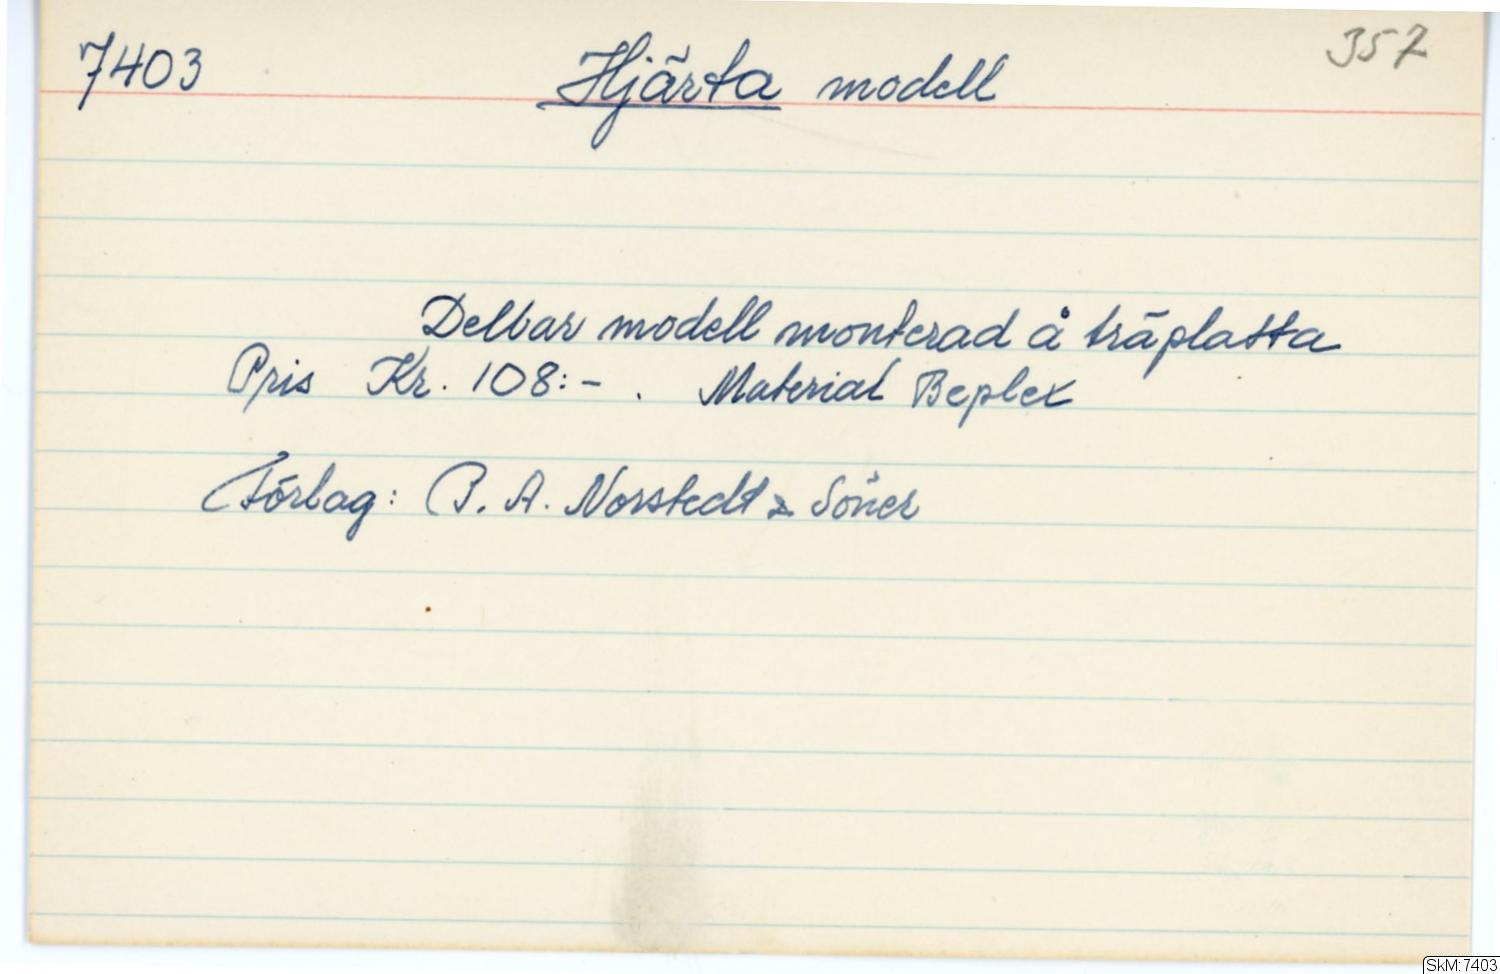 7403 Hjärta modell 357
Delbar modell monterad å träplatta
Pris Kr. 108:- . Material Beplex
Förlag: P. A. Norstedt & Söner
SkM:7403